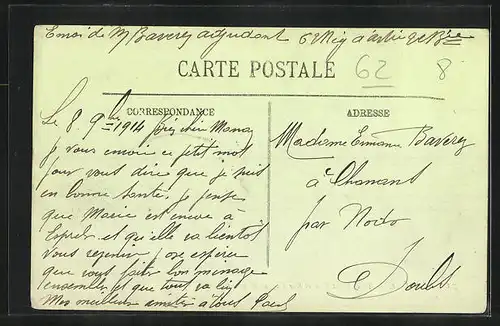 Envoi de M Baverez adjudant 6e Rég d'artie 2e Brie
CARTE POSTALE
62
8
CORRESPONDANCE
ADRESSE
Le 8 9bre 1914
bien chère Maman
je vous envoie ce petit mot
pour vous dire que je suis
en bonne santé. je pense
que Marie est encore à
et qu'elle va bientôt
vous revenir, j'ose espérer
que vous faites bon ménage
ensemble et que tout va bien
Mes meilleures amitiés à tous Paul
Madame Baverez
à Chanans
par Nods
Doubs